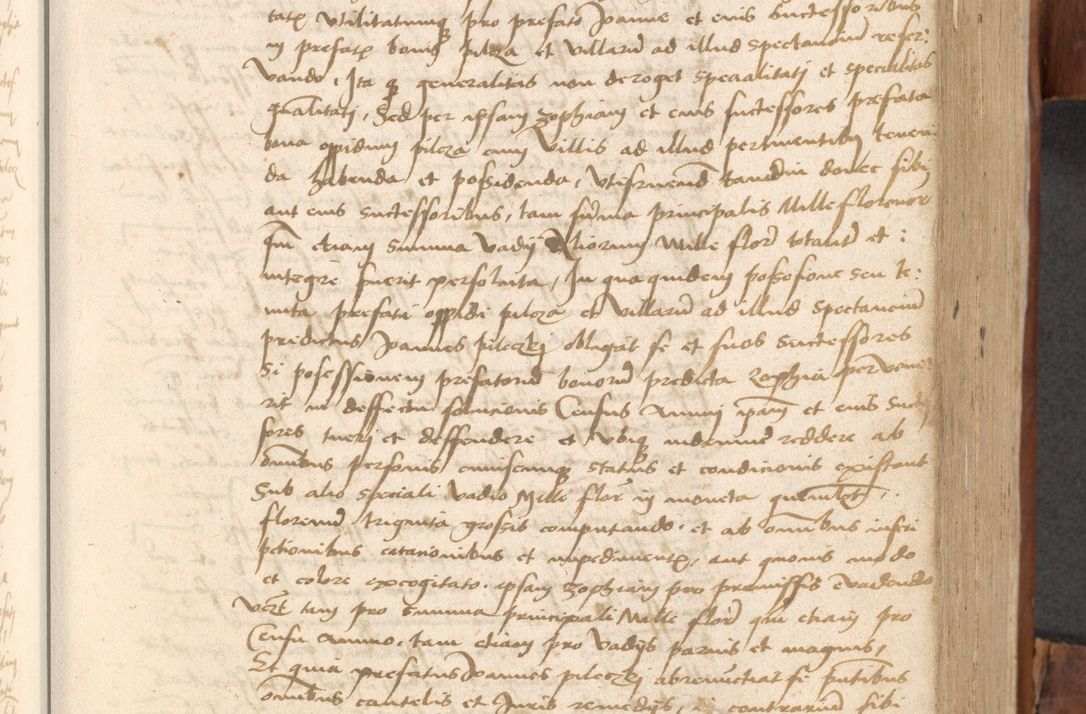 utilitatumq pro prefato Joanne et eius successoribus
in prefatis bonis pilcza et villarum ad illud spectancium reser-
vando, Ita q generalitas non deroget specialitati et specialitas
gnalitati, Sed per ipsam zophiam et eius successores prefata
bona oppidum pilcza cum villis ad illud pertinentibus tenen
da habenda et possidenda, utifruend tamdiu donec sibi
aut eius successoribus, tam summa principalis Mille florenor
qm etiam summa vadij aliorum Mille flor totaliter et
integre fuerit persoluta, In qua quidem possesione seu te-
nuta prefati oppidi pilcza et villarum ad illud spectancium
predictus Joannes pileczky obligat se et suos successores
Si possessionem prefatorum bonorum predicta zophia pervene
rit in deffectu solucionis Census Annui ipam et eius succes
sores tueri et deffendere et ubiq indemne reddere ab
omibus personis cuiuscumq status et condicionis existant
Sub alio speciali vadio Mille flor in moneta quemlbet
florenum triginta grossis computando, et ab omibus inscri
pcionibus et impedimentis, aut quovis modo
et colore excogitato, ipsam zophiam pro premissis evadendo
tam pro summa principali Mille flor qm etiam pro
Censu Annuo, tam etiam pro vadijs parvis et magnis,
Et quia prefatus Joannes pileczky abrenuctiat se pntibus
omibus cautelis et Juris remedijs, in contrarium sibi